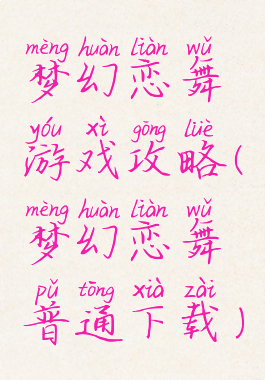 mèng huàn liàn wǔ
梦幻恋舞
yóu xì gōng lüè
游戏攻略(
mèng huàn liàn wǔ
梦幻恋舞
pǔ tōng xià zài
普通下载)